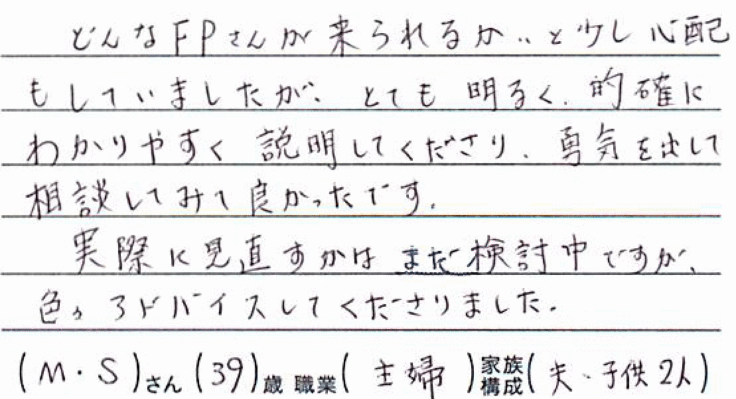 どんなFPさんが来られるか‥と少し心配
もしていましたが、とても明るく、的確に
わかりやすく説明してくださり、勇気を出して
相談してみて良かったです。
実際に見直すかはまだ検討中ですが、
色々アドバイスしてくださりました。
(M・S)さん(39)歳 職業(主婦)家族構成(夫・子供2人)